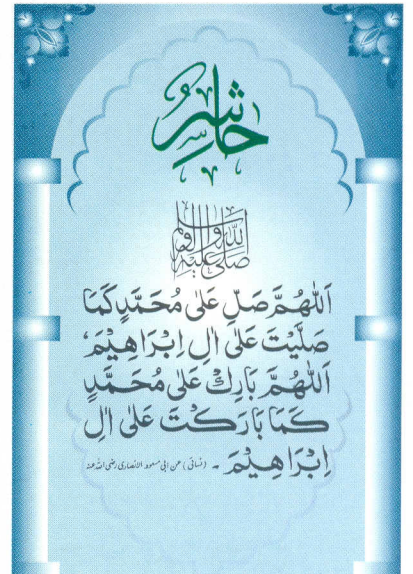 حَاشِرٌ
صَلَّى اللّٰهُ عَلَيْهِ وَاٰلِهٖ وَسَلَّمَ
اَللّٰهُمَّ صَلِّ عَلٰى مُحَمَّدٍ كَمَا
صَلَّيْتَ عَلٰى اٰلِ اِبْرَاهِيْمَ،
اَللّٰهُمَّ بَارِكْ عَلٰى مُحَمَّدٍ
كَمَا بَارَكْتَ عَلٰى اٰلِ
اِبْرَاهِيْمَ ۔ (نسائی) عن ابی مسعود الانصاری رضی اللہ عنہ